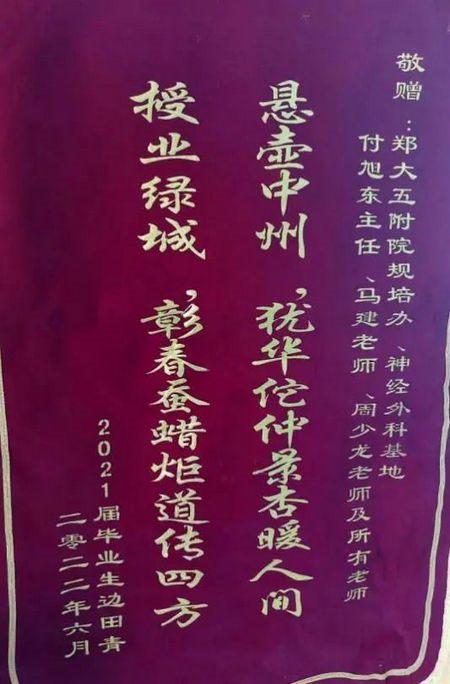 敬赠：郑大五附院规培办、神经外科基地
付旭东主任、马建老师、周少龙老师及所有老师
悬壶中州，犹华佗仲景杏暖人间
授业绿城，彰春蚕蜡炬道传四方
2021届毕业生边田青
二零二二年六月